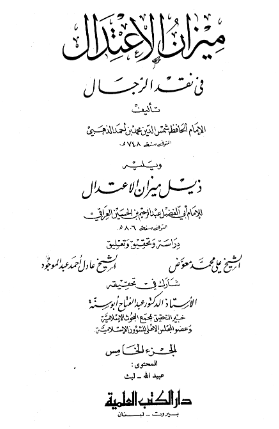 ميزان الاعتدال
في نقد الرجال
تأليف
الإمام الحافظ شمس الدين محمد بن أحمد الذهبي
المتوفى سنة ٧٤٨ هـ
ويليه
ذيل ميزان الاعتدال
للإمام أبي الفضل عبد الرحيم بن الحسين العراقي
المتوفى سنة ٨٠٦ هـ
دراسة وتحقيق وتعليق
الشيخ علي محمد معوض الشيخ عادل أحمد عبد الموجود
شارك في تحقيقه
الأستاذ الدكتور عبد الفتاح أبو سنة
خبير التحقيق بمجمع البحوث الإسلامية
وعضو المجلس الأعلى للشؤون الإسلامية
الجزء الخامس
المحتوى:
عبيد الله - ليث
دار الكتب العلمية
بيروت - لبنان